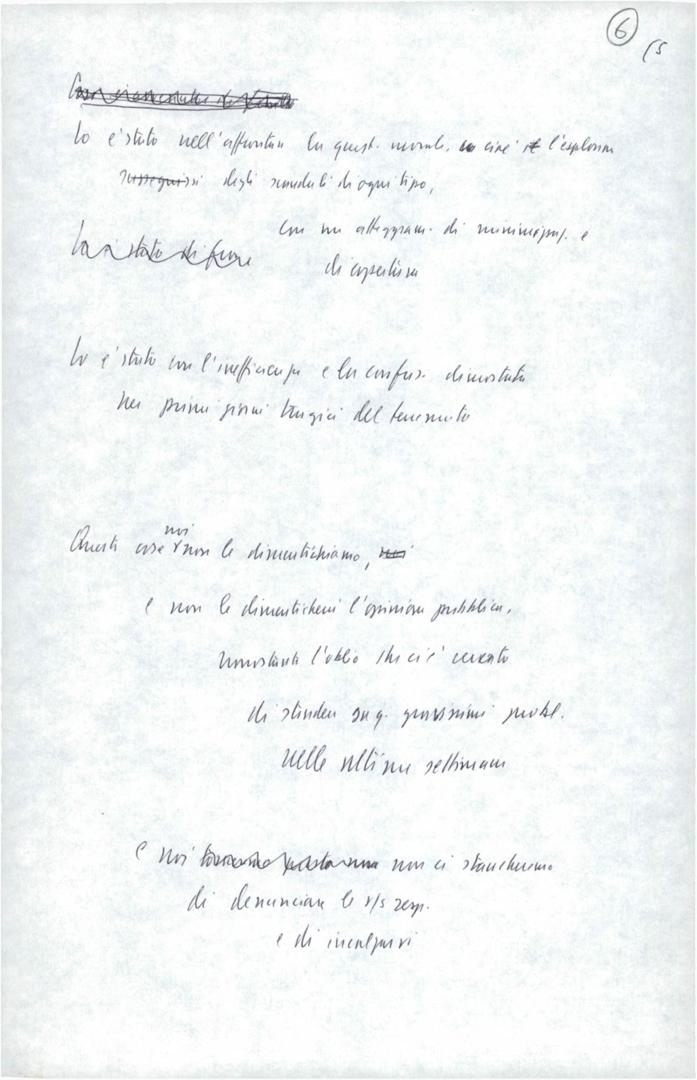 6
15
Lo è stato nell'affrontare la quest. morale, cioè l'esplosione
susseguirsi degli scandali di ogni tipo,
con un atteggiam. di minimizzaz. e
di copertura
Lo è stato di fronte
Lo è stato con l'inefficienza e la confus. dimostrata
nei primi giorni tragici del terremoto
Queste cose noi non le dimentichiamo, noi
e non le dimenticherà l'opinione pubblica,
nonostante l'oblio che si è cercato
di stendere su q. gravissimi probl.
nelle ultime settimane
e noi non ci stancheremo
di denunciare le vs resp.
e di incalzarvi